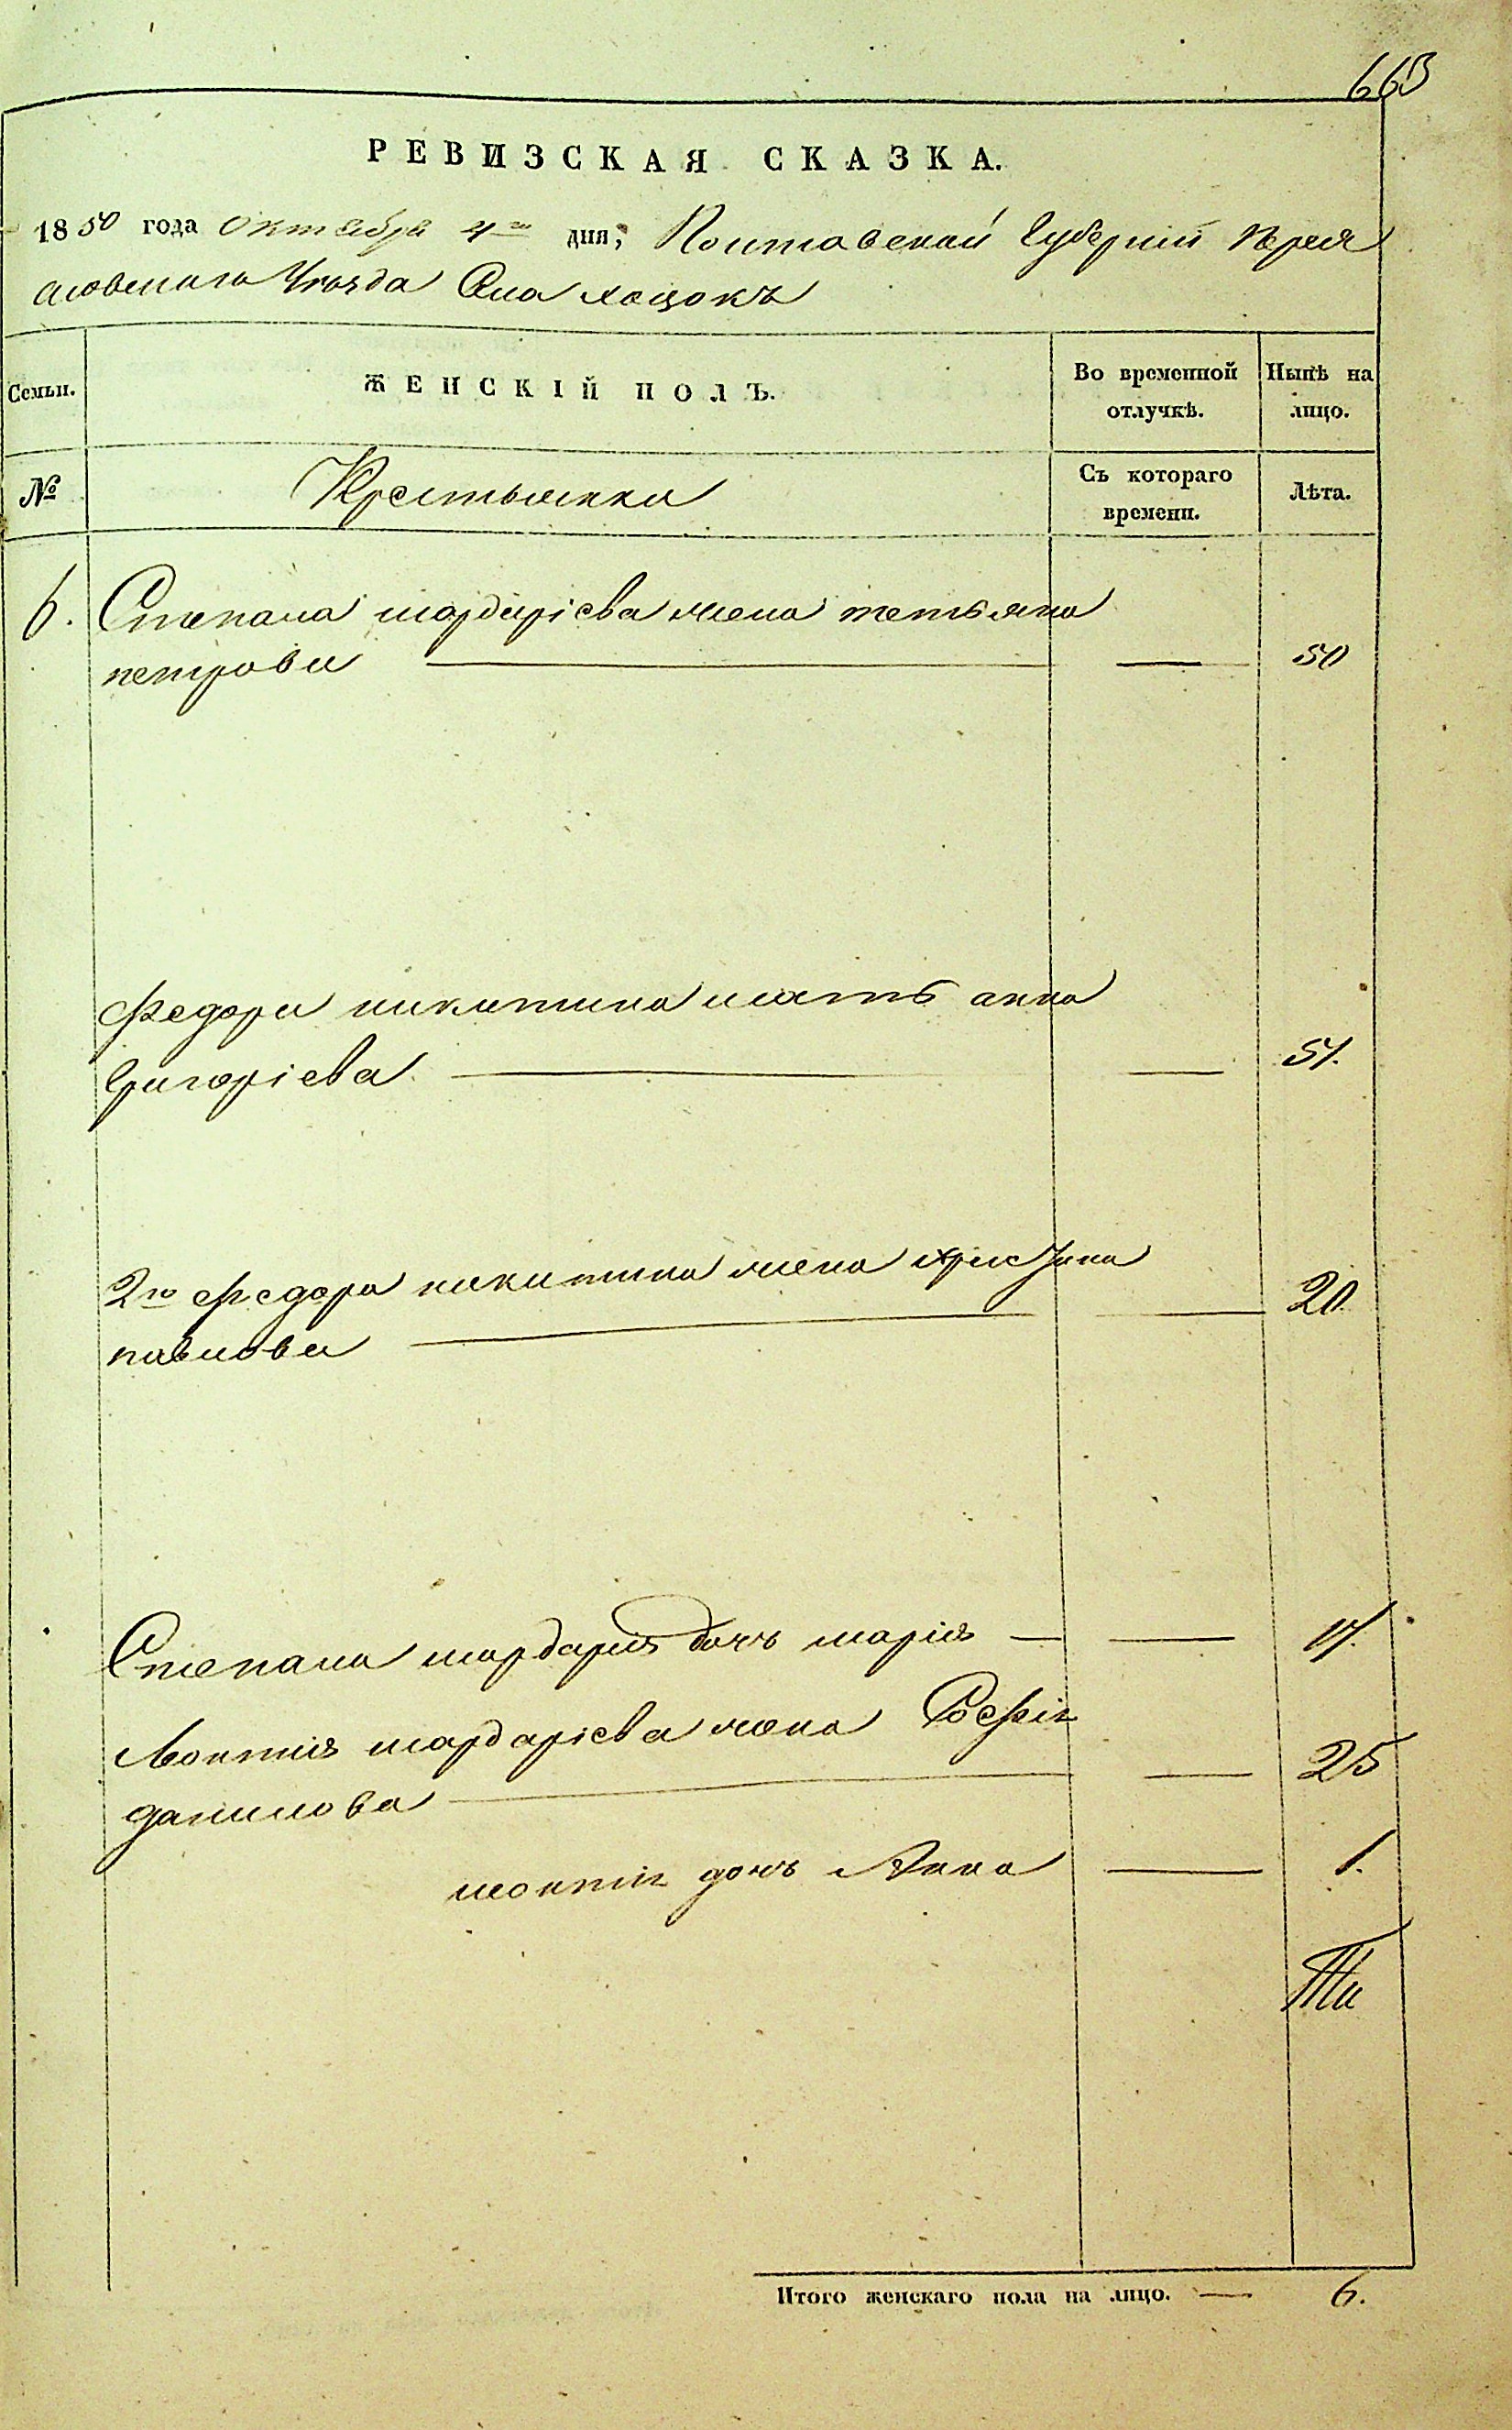 663
РЕВИЗСКАЯ СКАЗКА.
1850 года Октября 4го дня, Полтавской Губернии Перея
словскаго Уѣзда Села хоцокъ
Семьи. ЖЕНСКІЙ ПОЛЪ. Во временной отлучкѣ. Нынѣ на лицо.
№ Крестьянки Съ котораго времени. Лѣта.
6. Степана мардаріева жена татьяна
петрова — — 50
Федора никитина мать анна
Григоріева — — 51.
2го федора никитина жена христина
павлова — — 20
Степана мардарія дочь марія — — 17.
Леонтия мардаріева жена Софія
данилова — — 25
леонтія дочь Анна — 1.
Итого женскаго пола на лицо. — 6.